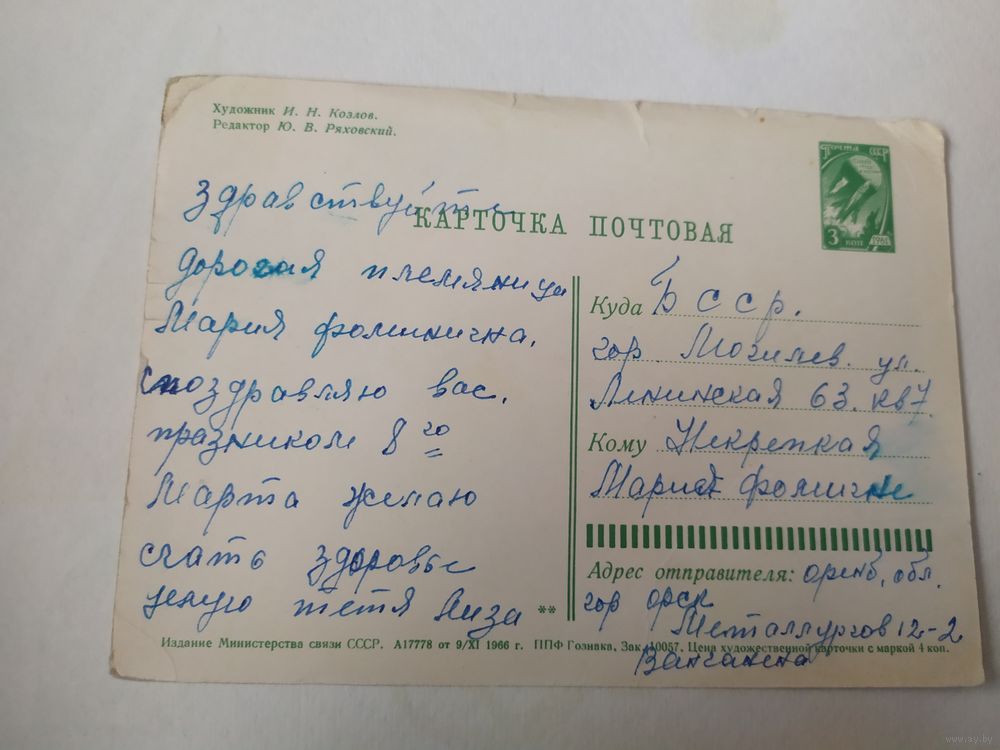 Художник И. Н. Козлов.
Редактор Ю. В. Ряховский.
ПОЧТА СССР
3 КОП 1961
КАРТОЧКА ПОЧТОВАЯ
Здравствуйте
дорогая племяница
Мария фоминична.
поздравляю вас.
празником 8 го
Марта желаю
счать здоровье
целую тетя Лиза
**
Куда БССР.
гор. Могилев. ул.
Ленинская 63. кв 7
Кому Некрепкая
Мария фомични
Адрес отправителя: оренб. обл.
гор орск
Металлургов 12-2
Издание Министерства связи СССР. А17778 от 9/XI 1966 г. ППФ Гознака. Зак. 10057. Цена художественной карточки с маркой 4 коп.
www.ay.by